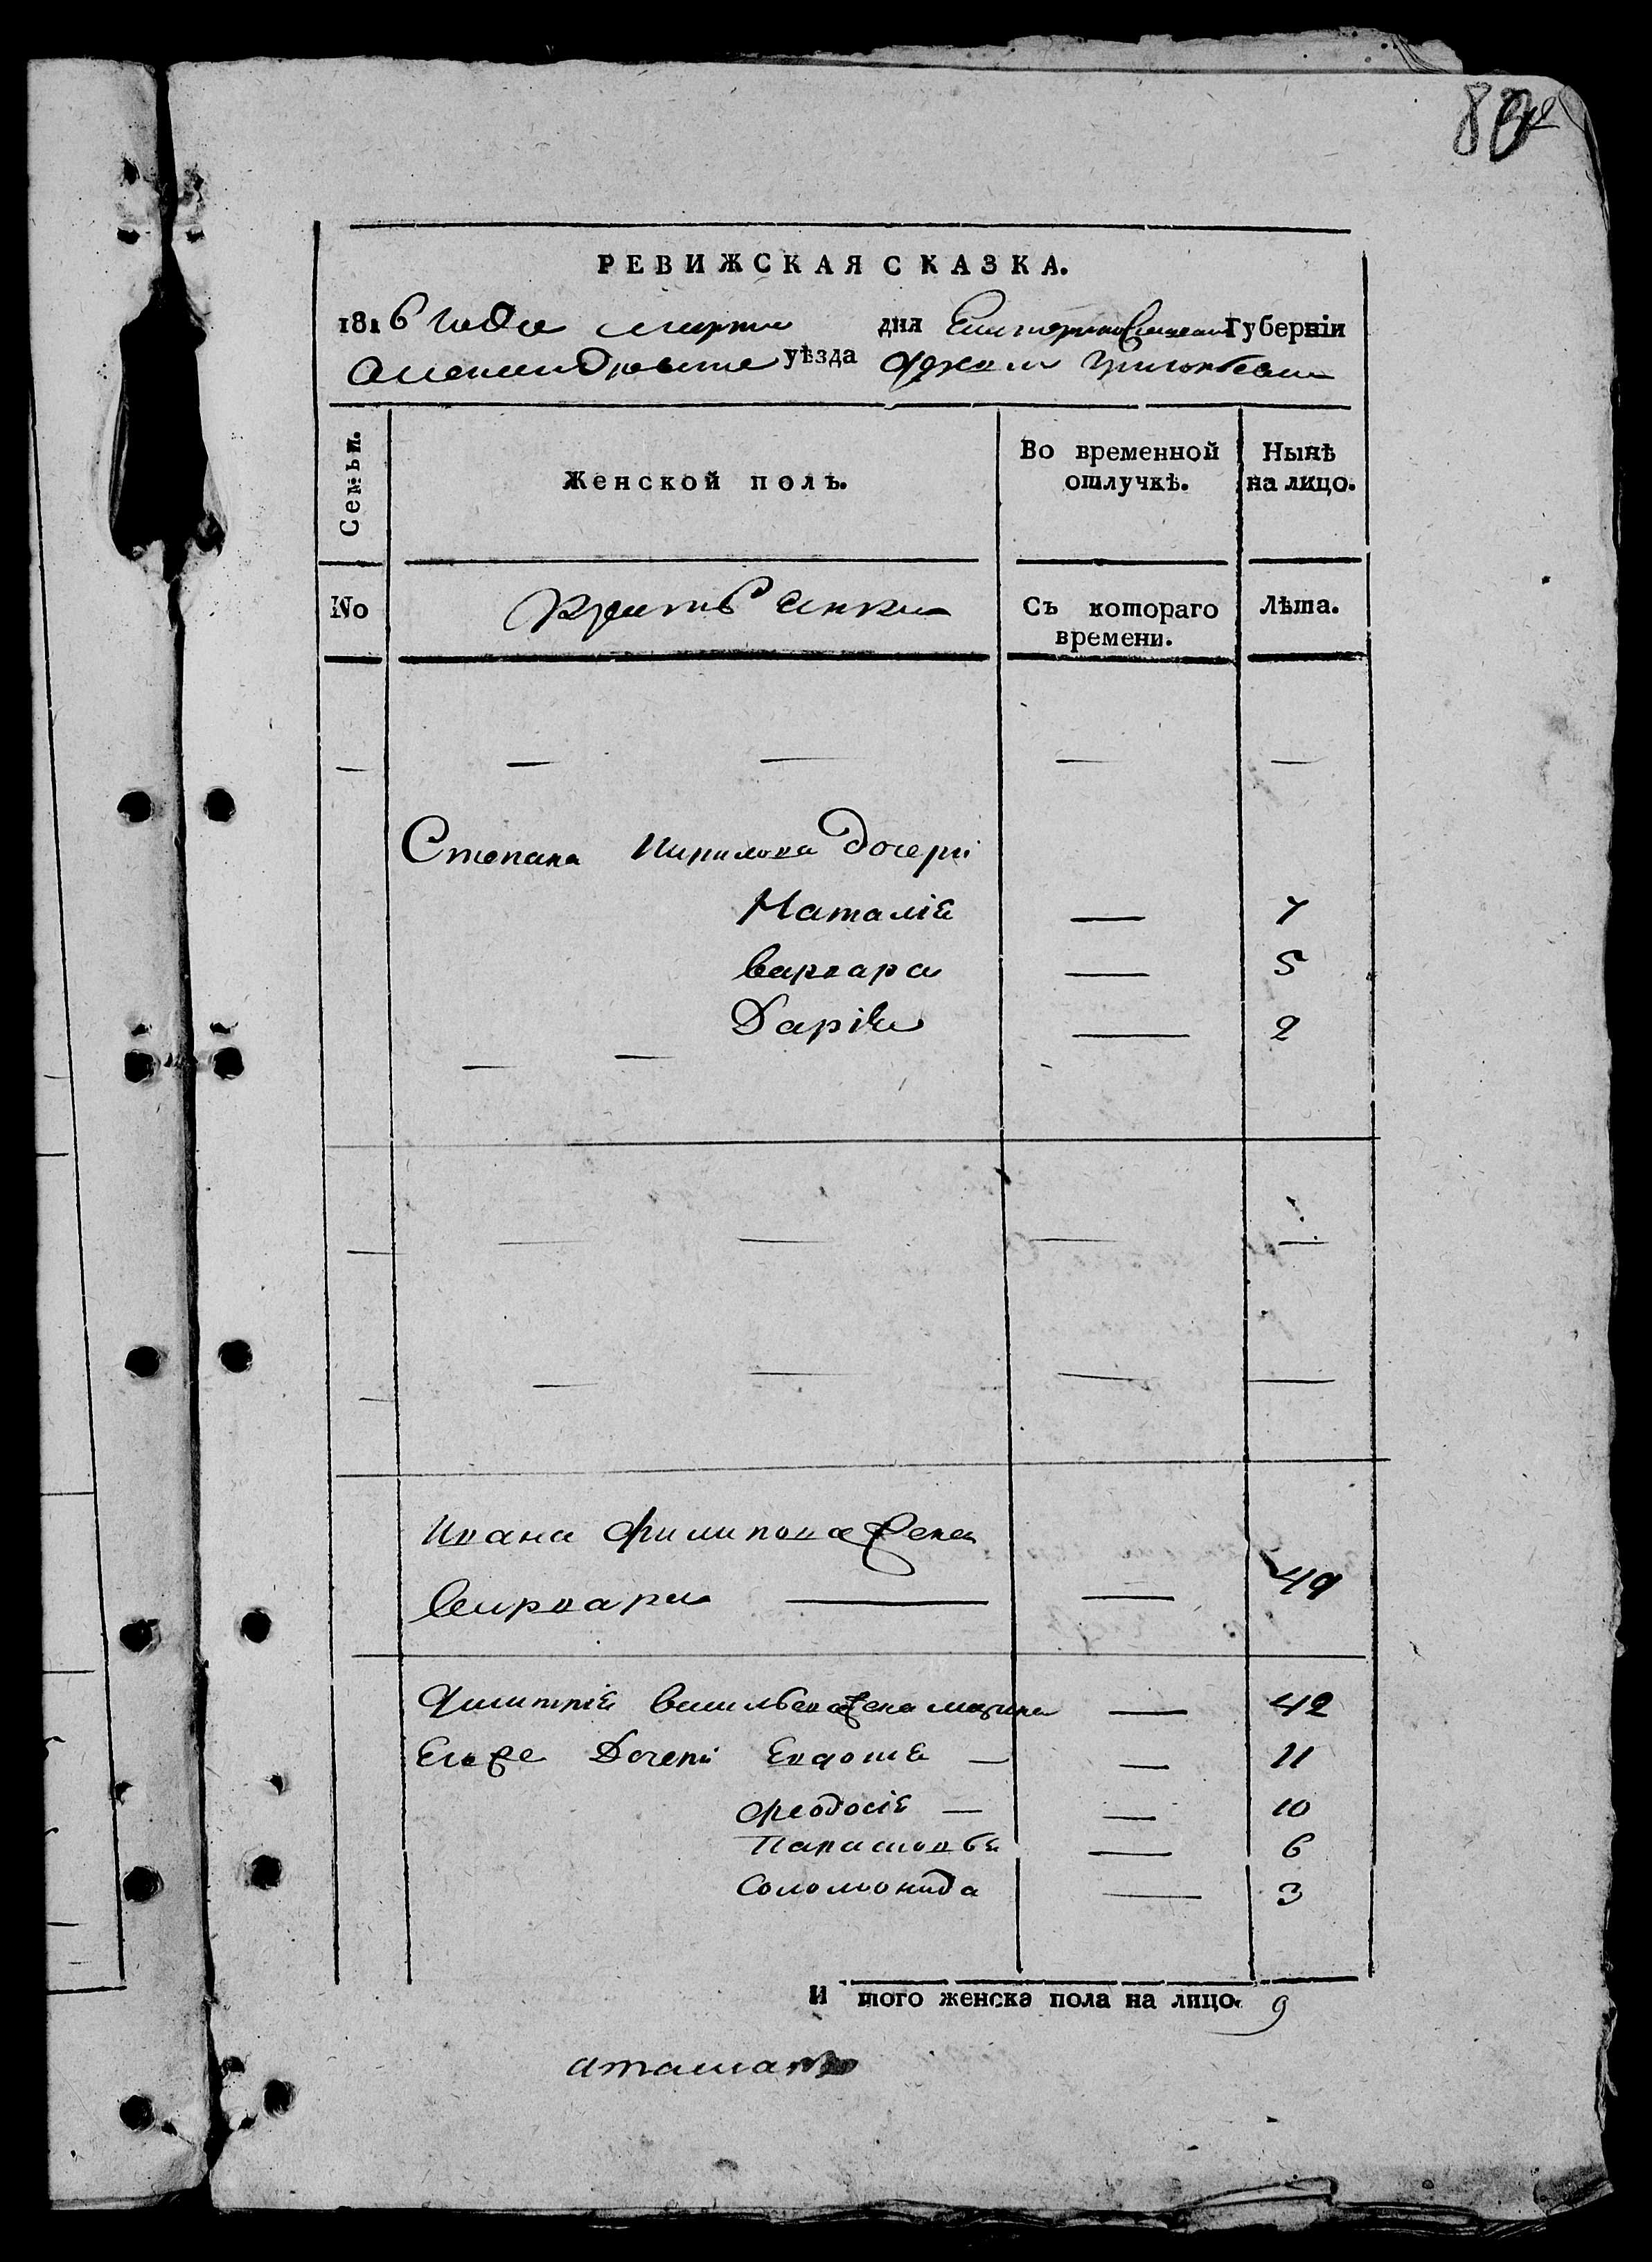 РЕВИЖСКАЯ СКАЗКА.
1816 года марта дня Екатеринославской Губерніи
уѣзда
Семьи.
Женской полъ.
Во временной отлучкѣ.
Нынѣ на лицо.
No
Съ котораго времени.
Лѣта.
Степана Кирилова дочери
Наталіе 7
варвара 5
Дарія 2
Ивана Филипова жена
варвара 49
васильева жена марина 42
Егоже Дочери 11
Феодосіе 10
Парасковья 6
Соломонида 3
И того женска пола на лицо. 9